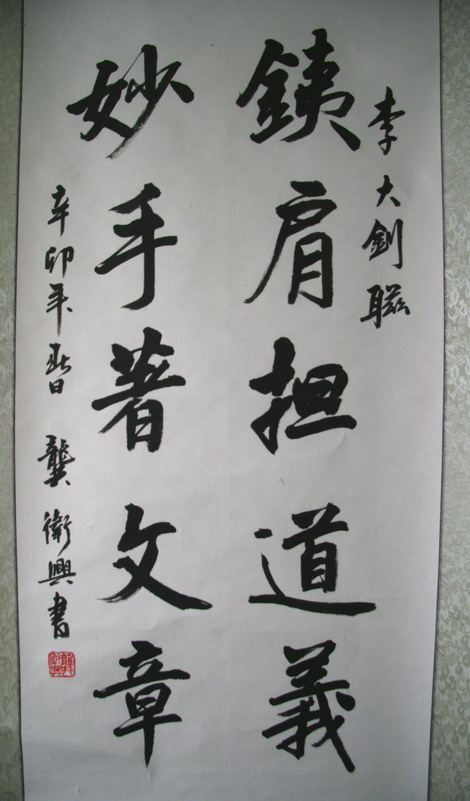 李大釗聯
銕肩担道義
妙手著文章
辛卯年春日 龔衛興書